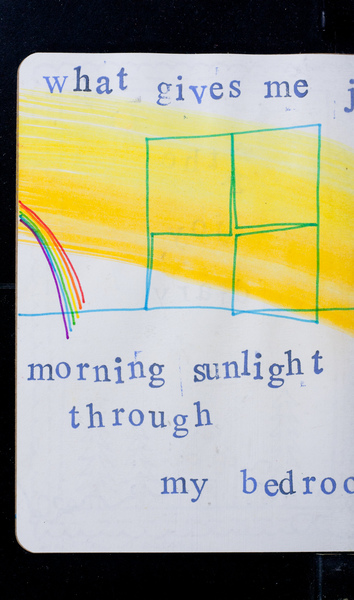 what gives me j
morning sunlight
through
my bedroo